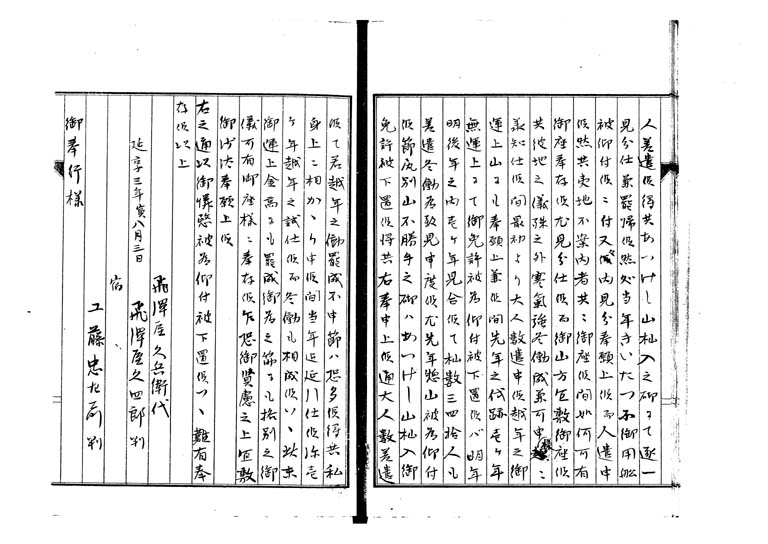 人差遣候得共あつけし山杣入之砌ゟて逐一
見分仕兼罷帰候然処当年きいたつふ御用船
被仰付候ニ付又々内見分奉願上候而人遣申
候然共夷地不案内者共ニ御座候間如何可有
御座奉存候尤見分仕候而御山方宜敷御座候
共彼地之儀殊之外寒気強冬働成兼可申ニ
承知仕候間最初ゟ大人数遣申候越年之御
運上山ゟも奉願上兼候間先年之代跡壱ヶ年
無運上ゟて御免許被為仰付被下置候ハ明年
明後年之内壱ヶ年見合候て杣数三四拾人も
差遣冬働為致見申度候尤先年惣山被為仰付
候節庇別山不勝手之砌ハあつけし山杣入御
免許被下置候得共右奉申上候通大人数差遣
候て若越年之働罷成不申節ハ恐多候得共私
身上ニ相かゝり申候間当年迄延川仕候弥壱
ヶ年越年之試仕候而冬働も相成候ハゝ此末
御運上金高ゟも罷成御為之筋ゟも格別之御
儀可有御座様ニ奉存候乍恐御賢慮之上宜敷
御沙汰奉願上候
右之通以御憐愍被為仰付被下置候ハゝ難有奉
存候以上
飛澤屋久兵衛代
延享三年寅八月三日 飛澤屋久四郎判
宿 工藤忠左衛門判
御奉行様